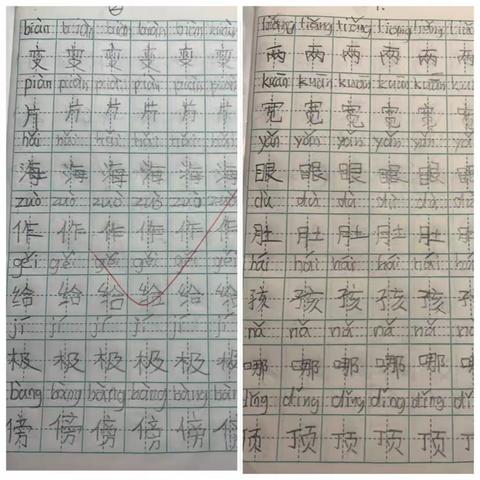 biàn biàn biàn biàn biàn biàn
变 变 变 变 变 变
piàn piàn piàn piàn piàn piàn
片 片 片 片 片 片
hǎi hǎi hǎi hǎi hǎi hǎi
海 海 海 海 海 海
zuò zuò zuò zuò zuò zuò
作 作 作 作 作 作
gěi gěi gěi gěi gěi gěi
给 给 给 给 给 给
jí jí jí jí jí jí
极 极 极 极 极 极
bàng bàng bàng bàng bàng bàng
傍 傍 傍 傍 傍 傍
liǎng liǎng liǎng liǎng liǎng
两 两 两 两 两 两
kuān kuān kuān kuān kuān kuān
宽 宽 宽 宽 宽 宽
yǎn yǎn yǎn yǎn yǎn yǎn
眼 眼 眼 眼 眼 眼
dù dù dù dù dù dù
肚 肚 肚 肚 肚 肚
hái hái hái hái hái hái
孩 孩 孩 孩 孩 孩
nǎ nǎ nǎ nǎ nǎ nǎ
哪 哪 哪 哪 哪 哪
dǐng dǐng dǐng dǐng dǐng dǐng
顶 顶 顶 顶 顶 顶